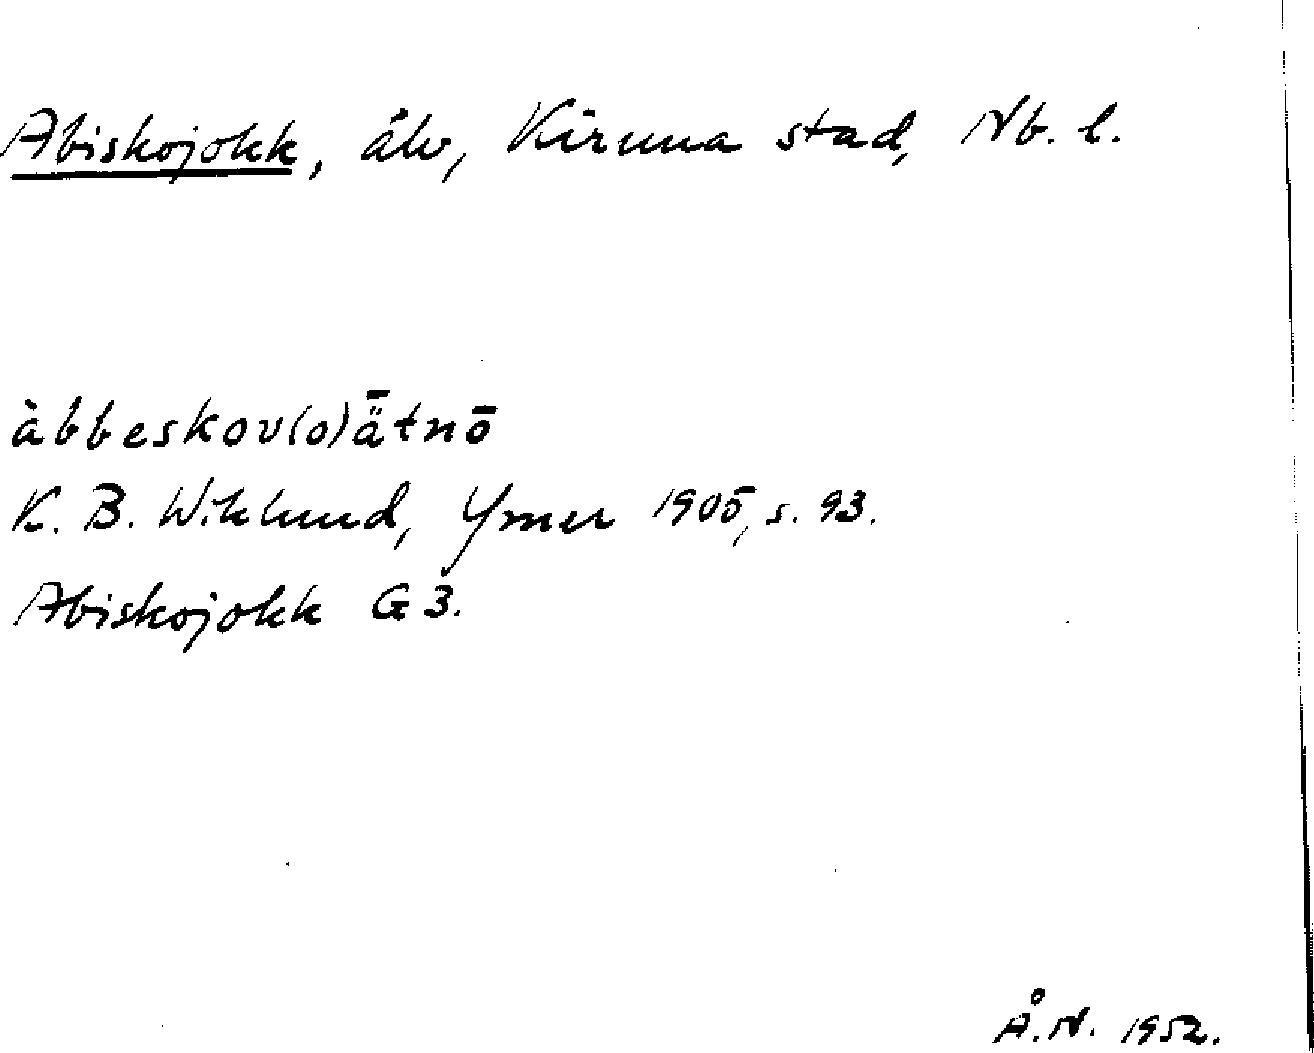 Abiskojokk, älv, Kiruna stad, Nb. l.
àbbeskov(o)ǟtnō
K. B. Wiklund, Ymer 1905, s. 93.
Abiskojokk G3.
Å.N. 1952.